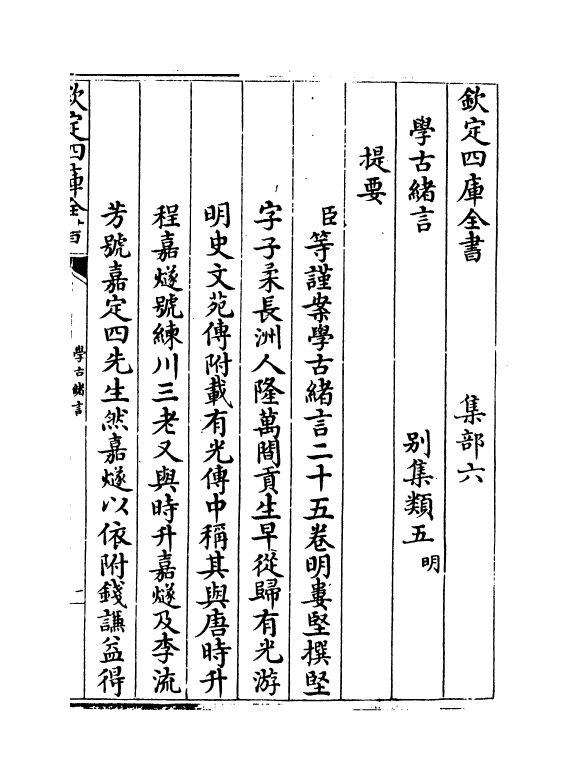 欽定四庫全書 集部六
學古緒言 别集類五明
提要
臣等謹案學古緒言二十五卷明婁堅撰堅
字子柔長洲人隆萬間貢生早從歸有光游
明史文苑傳附載有光傳中稱其與唐時升
程嘉燧號練川三老又與時升嘉燧及李流
芳號嘉定四先生然嘉燧以依附錢謙益得
欽定四庫全
學古緒言